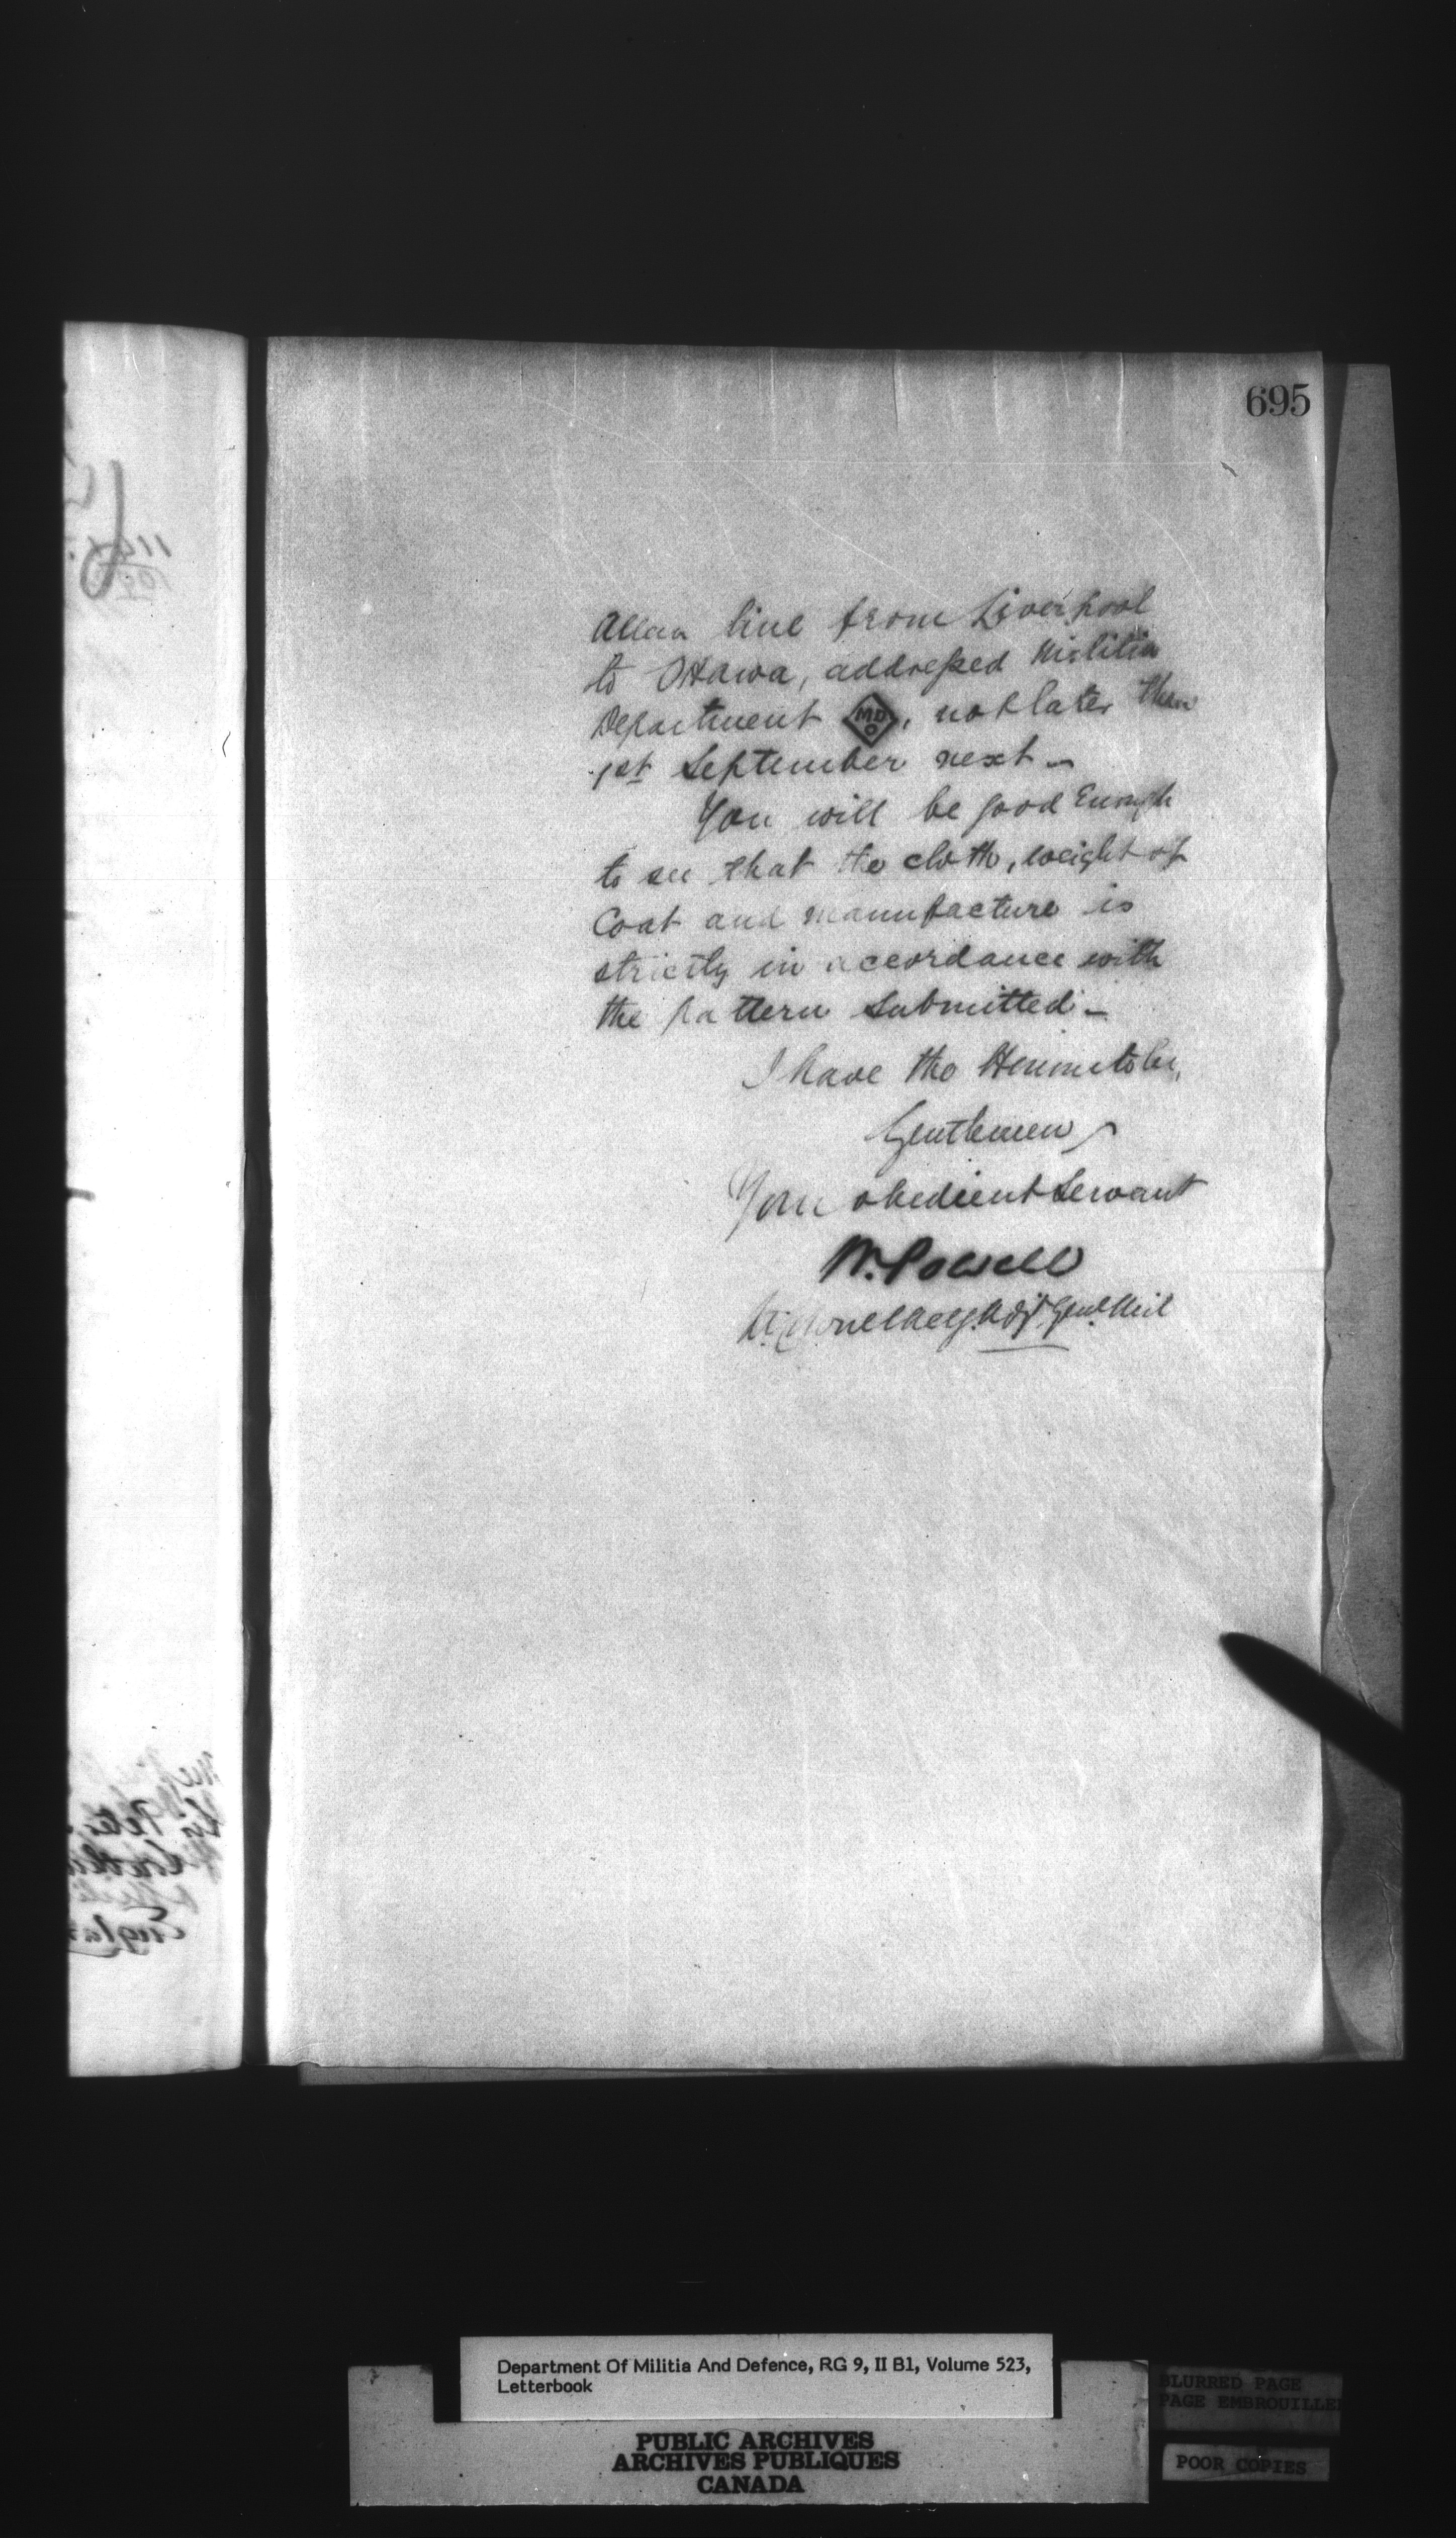 695
Allan line from Liverpool
to Ottawa, addressed Militia
Department MD O, not later than
1st September next -
You will be good Enough
to see that the cloth, weight of
Coat and manufacture is
strictly in accordance with
the pattern submitted -
I have the Honour to be,
Gentlemen,
Your obedient Servant
W. Powell
Lt. Colonel Adjt. Genl. Mil
Department Of Militia And Defence, RG 9, II B1, Volume 523,
Letterbook
PUBLIC ARCHIVES
ARCHIVES PUBLIQUES
CANADA
BLURRED PAGE
PAGE EMBROUILLE
POOR COPIES